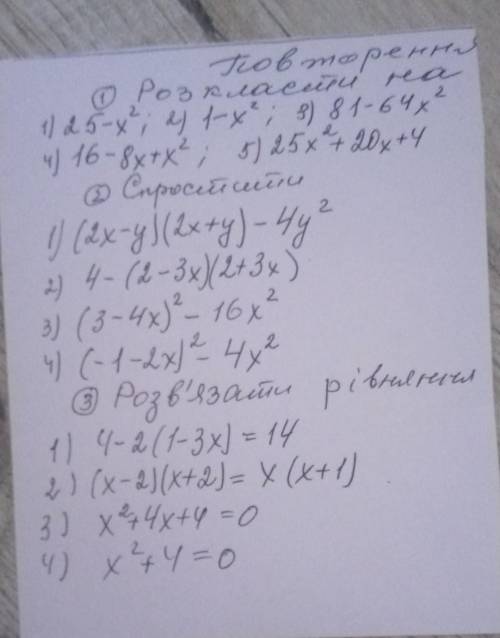 Повторення
① Розкласти на
1) 25-x²; 2) 1-x²; 3) 81-64x²
4) 16-8x+x²; 5) 25x²+20x+4
② Спростити
1) (2x-y)(2x+y)-4y²
2) 4-(2-3x)(2+3x)
3) (3-4x)²-16x²
4) (-1-2x)²-4x²
③ Розв'язати рівняння
1) 4-2(1-3x)=14
2) (x-2)(x+2)=x(x+1)
3) x²+4x+4=0
4) x²+4=0